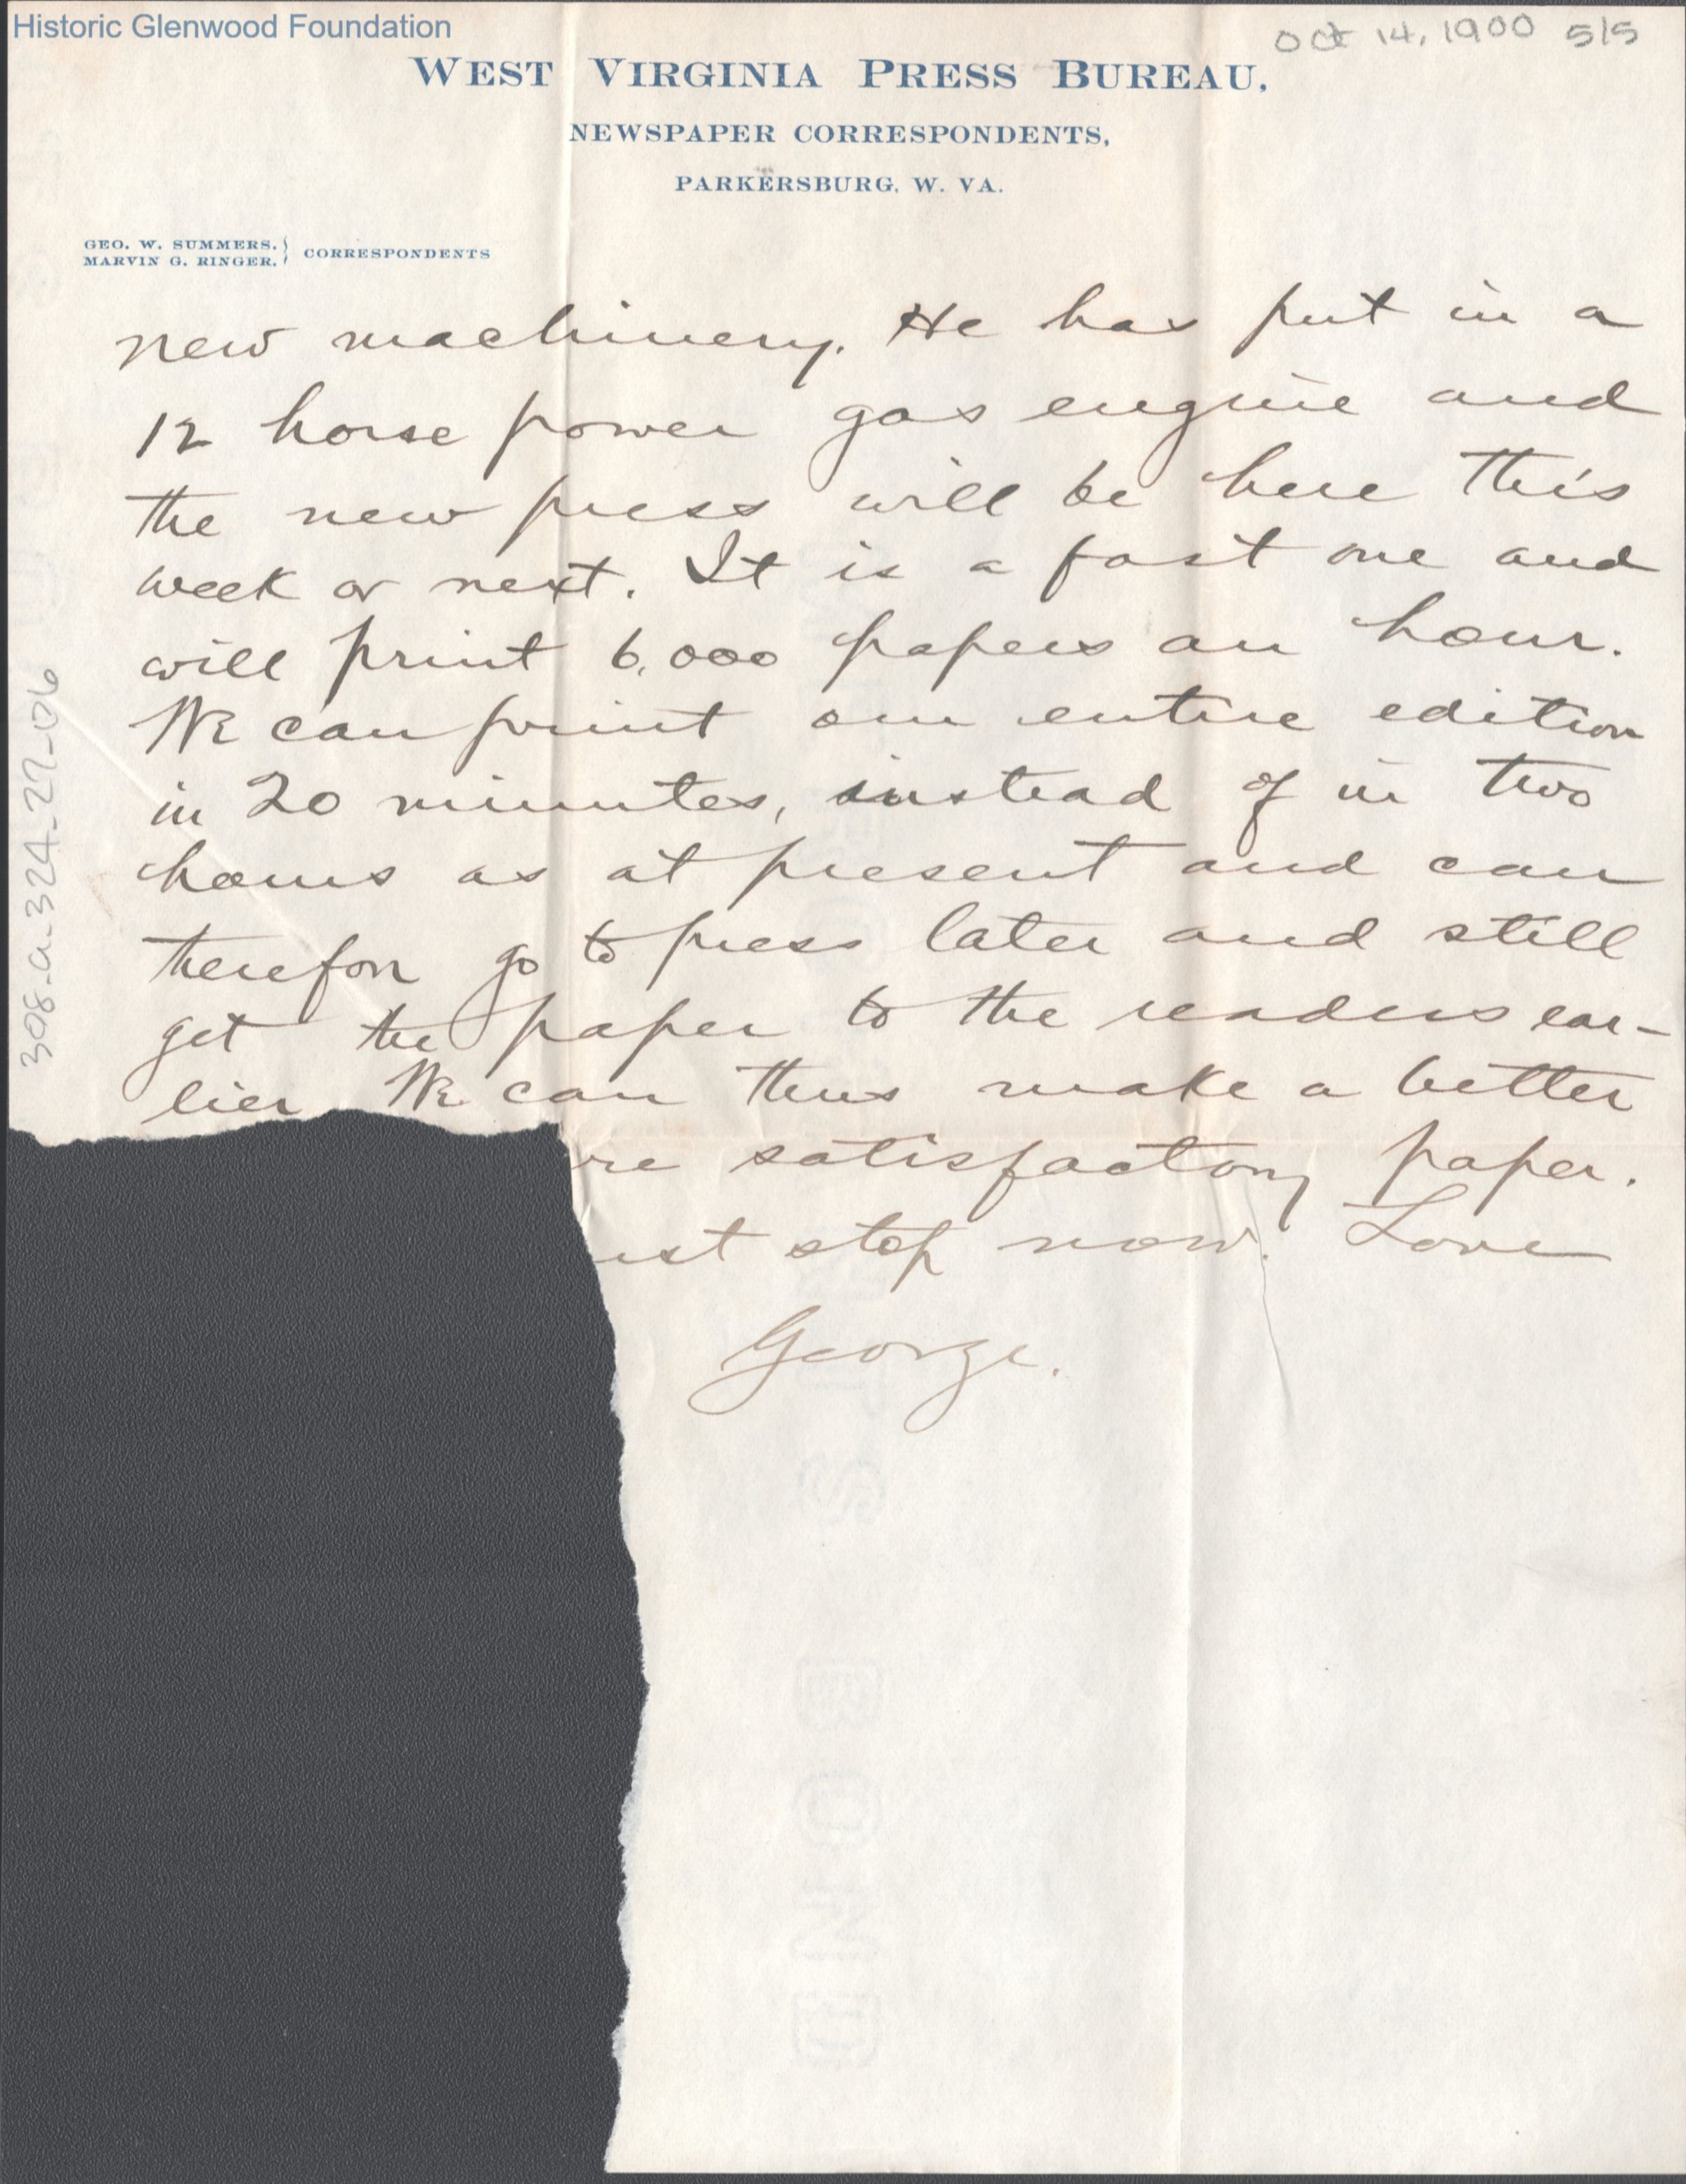 Historic Glenwood Foundation
Oct 14, 1900 5/5
WEST VIRGINIA PRESS BUREAU,
NEWSPAPER CORRESPONDENTS,
PARKERSBURG, W. VA.
GEO. W. SUMMERS. } CORRESPONDENTS
MARVIN G. RINGER.
new machinery. He has put in a
12 horse power gas engine and
the new press will be here this
week or next. It is a fast one and
will print 6,000 papers an hour.
We can print our entire edition
in 20 minutes, instead of in two
hours as at present and can
therefor go to press later and still
get the paper to the readers ear-
lier We can thus make a better
re satisfactory paper.
ust stop now. Love
George.
308-a-324-27-06
BOND